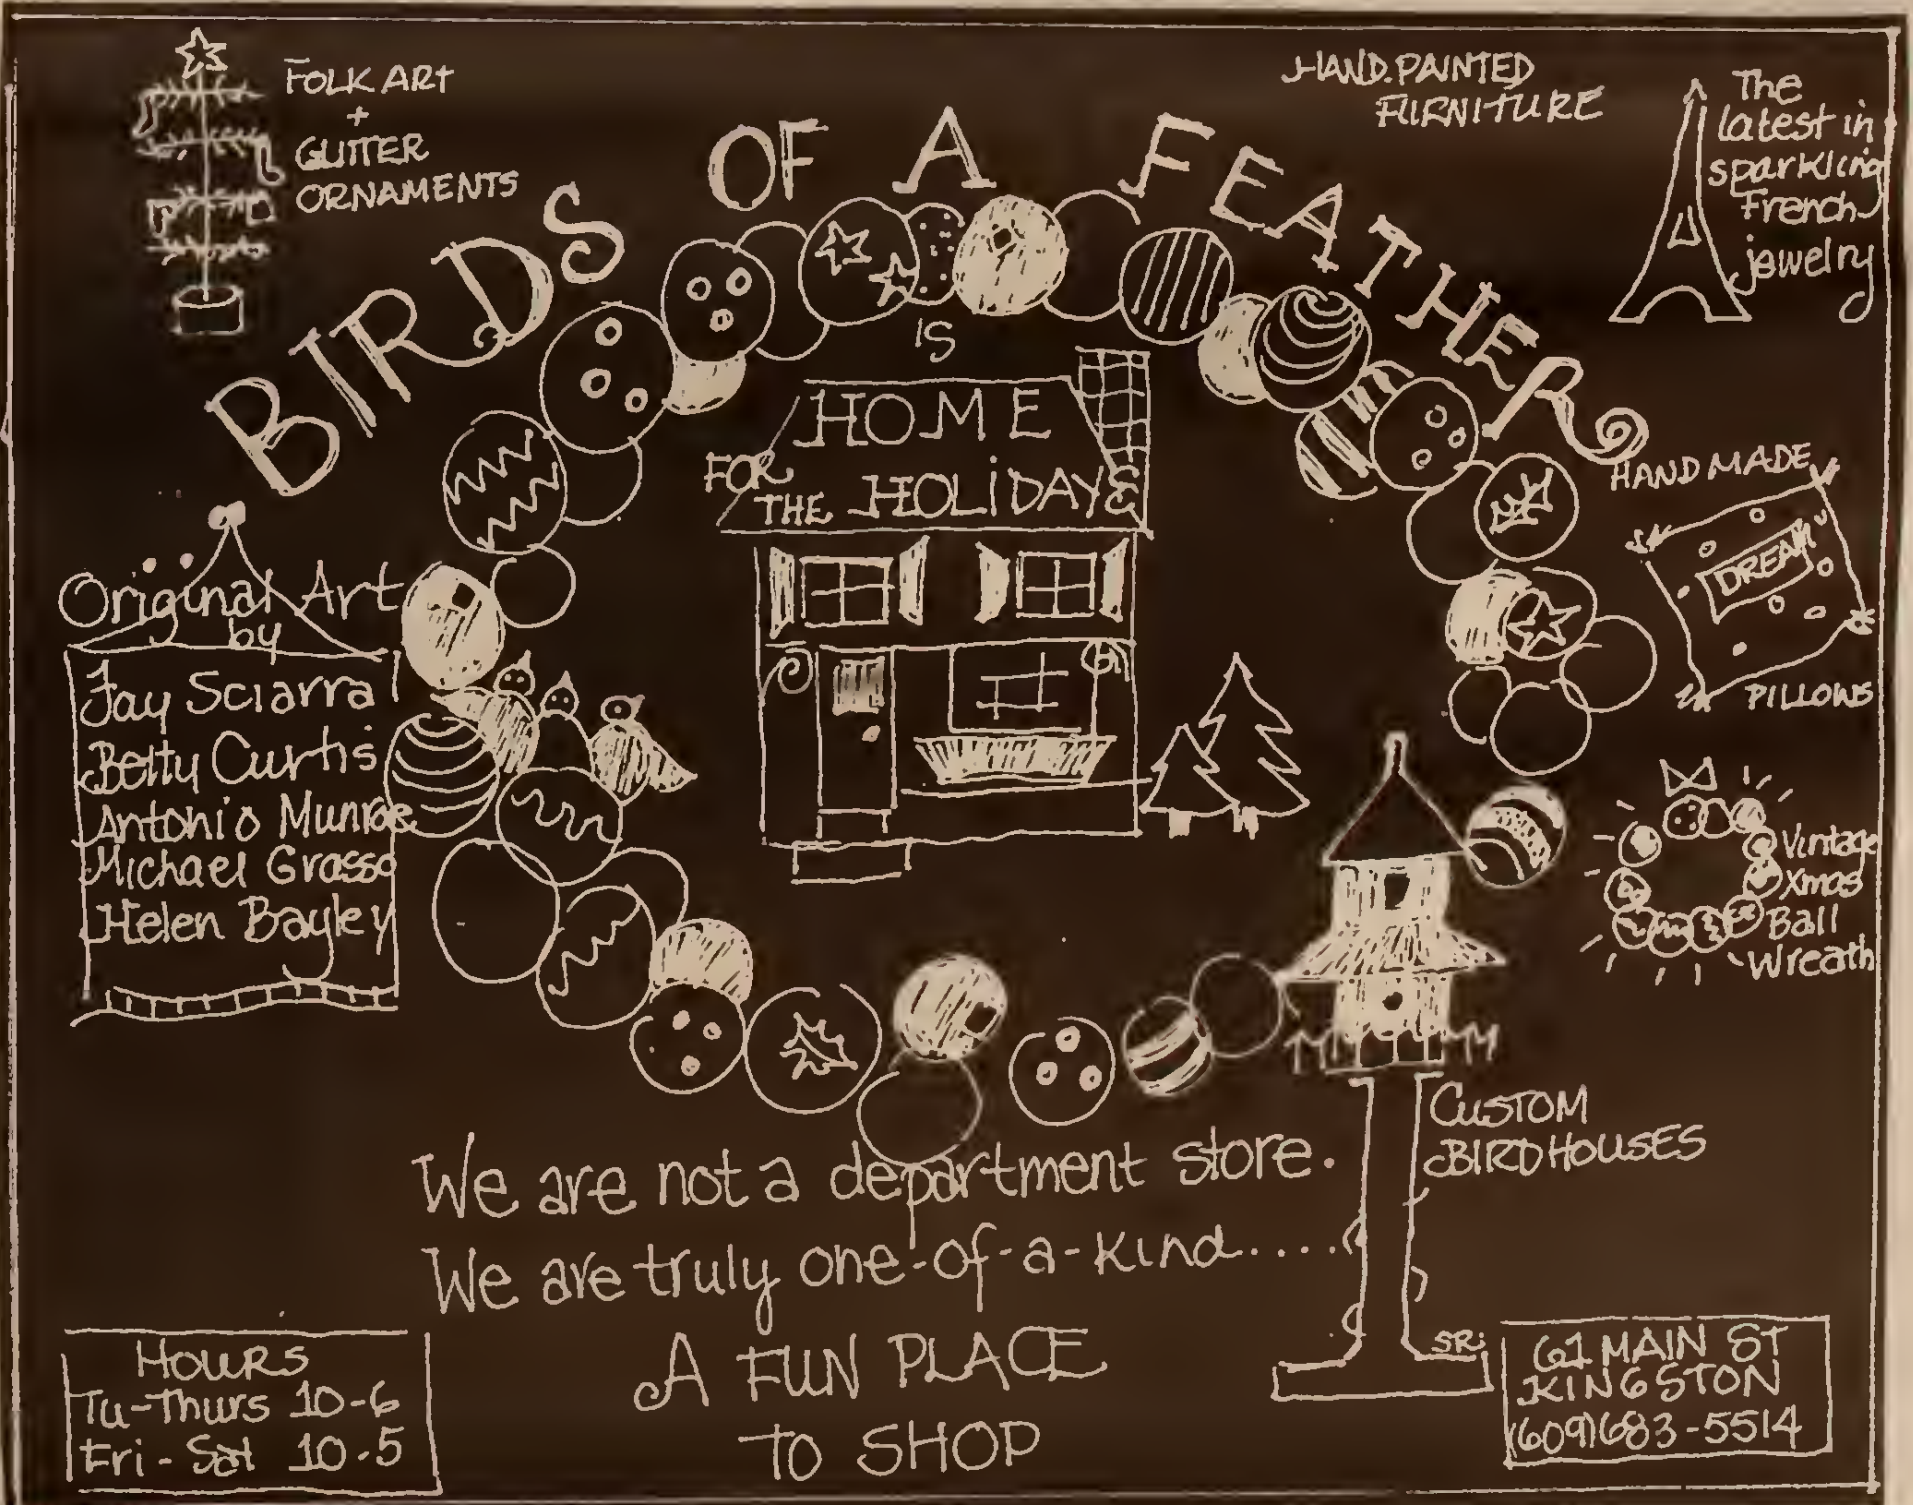 FOLK ART
+
GLITTER
ORNAMENTS
HAND.PAINTED
FURNITURE
The
latest in
sparkling
French
jewelry
BIRDS OF A FEATHER
IS
HOME
FOR
THE HOLIDAYS
HANDMADE
DREAM
PILLOWS
Original Art
by
Jay Sciarra
Betty Curtis
Antonio Munroe
Michael Grasso
Helen Bayley
Vintage
Xmas
Ball
Wreath
CUSTOM
BIRDHOUSES
We are not a department store.
We are truly one-of-a-kind.....
A FUN PLACE
TO SHOP
HOURS
Tu-Thurs 10-6
Fri-Sat 10-5
SR.
61 MAIN ST
KINGSTON
(609)683-5514